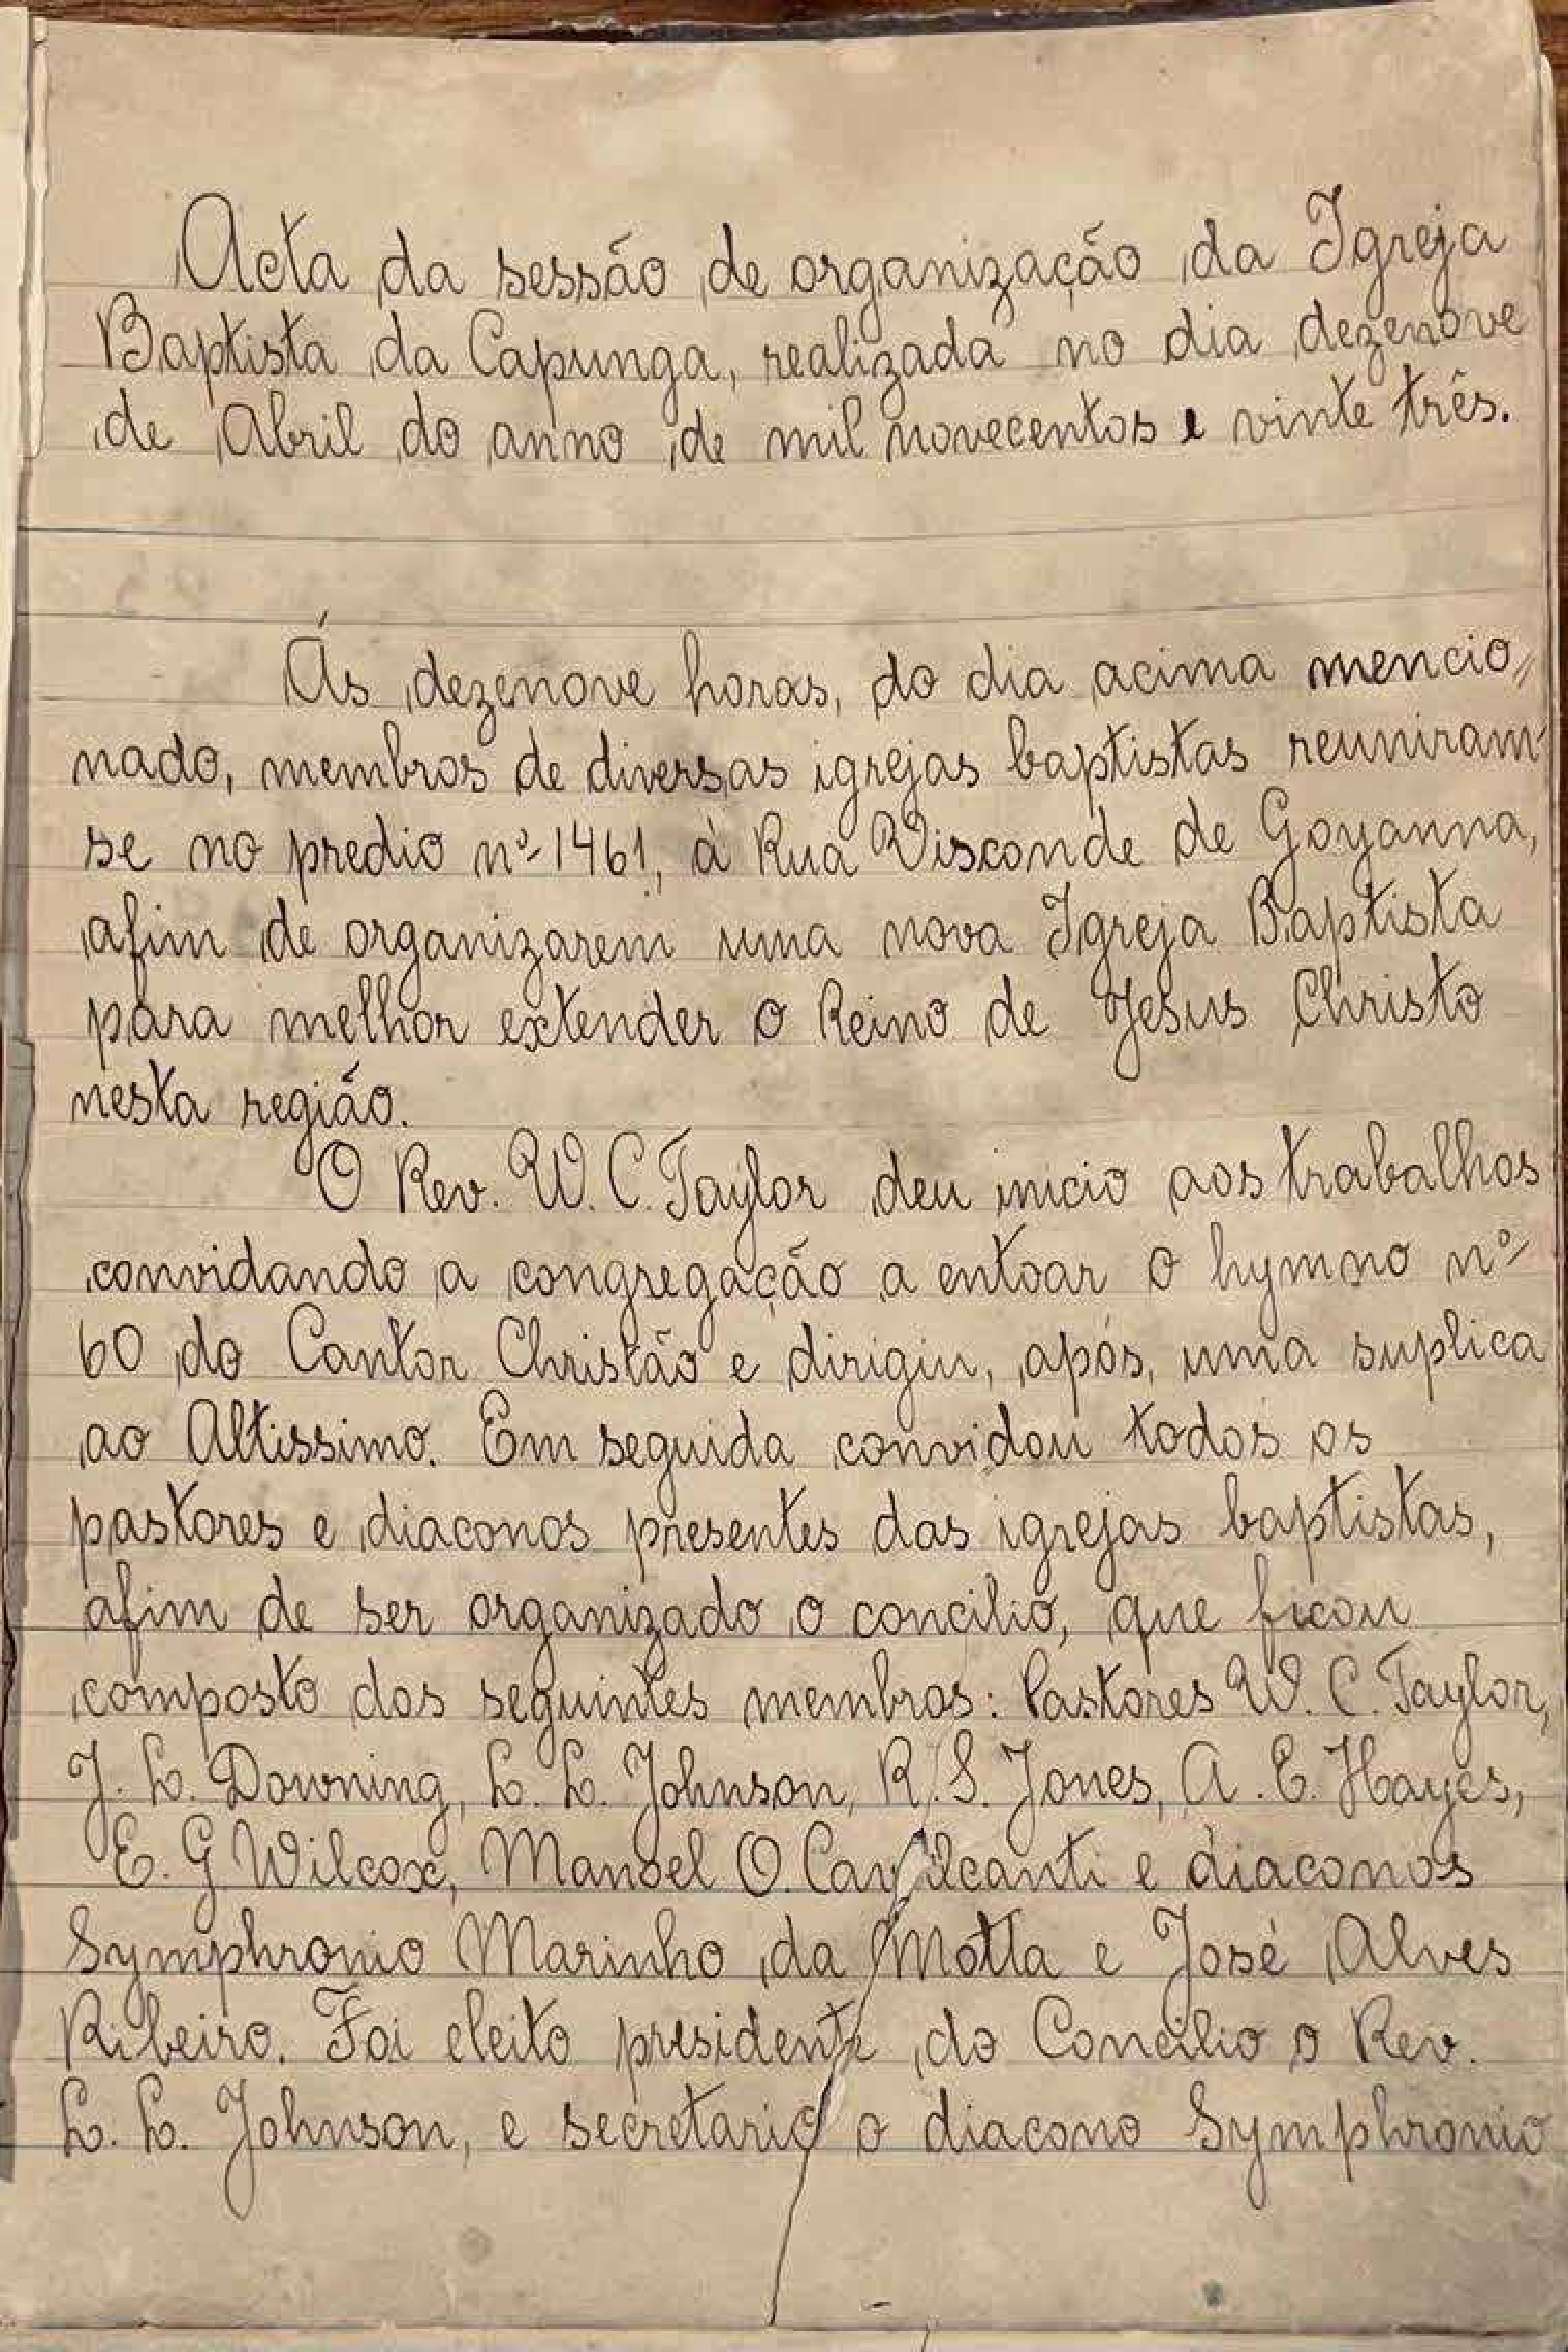 Acta da sessão de organização da Igreja
Baptista da Capunga, realizada no dia dezenove
de Abril do anno de mil novecentos e vinte três.
Ás dezenove horas, do dia acima mencio=
nado, membros de diversas igrejas baptistas reuniram-
se no predio nº 1461, à Rua Visconde de Goyanna,
afim de organizarem uma nova Igreja Baptista
para melhor extender o Reino de Jesus Christo
nesta região.
O Rev. W. C. Taylor deu inicio aos trabalhos
convidando a congregação a entoar o hymno nº
60 do Cantor Christão e dirigiu, após, uma suplica
ao Altissimo. Em seguida convidou todos os
pastores e diaconos presentes das igrejas baptistas,
afim de ser organizado o concilio, que ficou
composto dos seguintes membros: Pastores W. C. Taylor,
J. L. Downing, L. L. Johnson, R. S. Jones, A. E. Hayes,
E. G. Wilcox, Manoel O. Cavalcanti e diaconos
Symphronio Marinho da Motta e José Alves
Ribeiro. Foi eleito presidente do Concilio o Rev.
L. L. Johnson, e secretario o diacono Symphronio